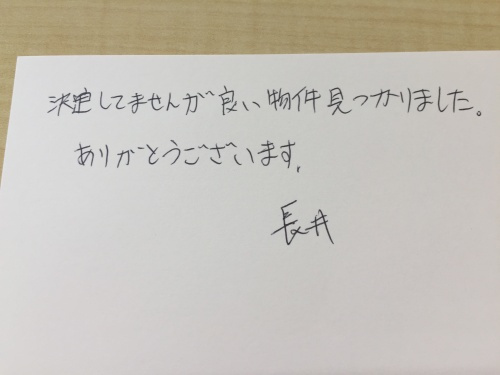 決定してませんが良い物件見つかりました。
ありがとうございます。
長井